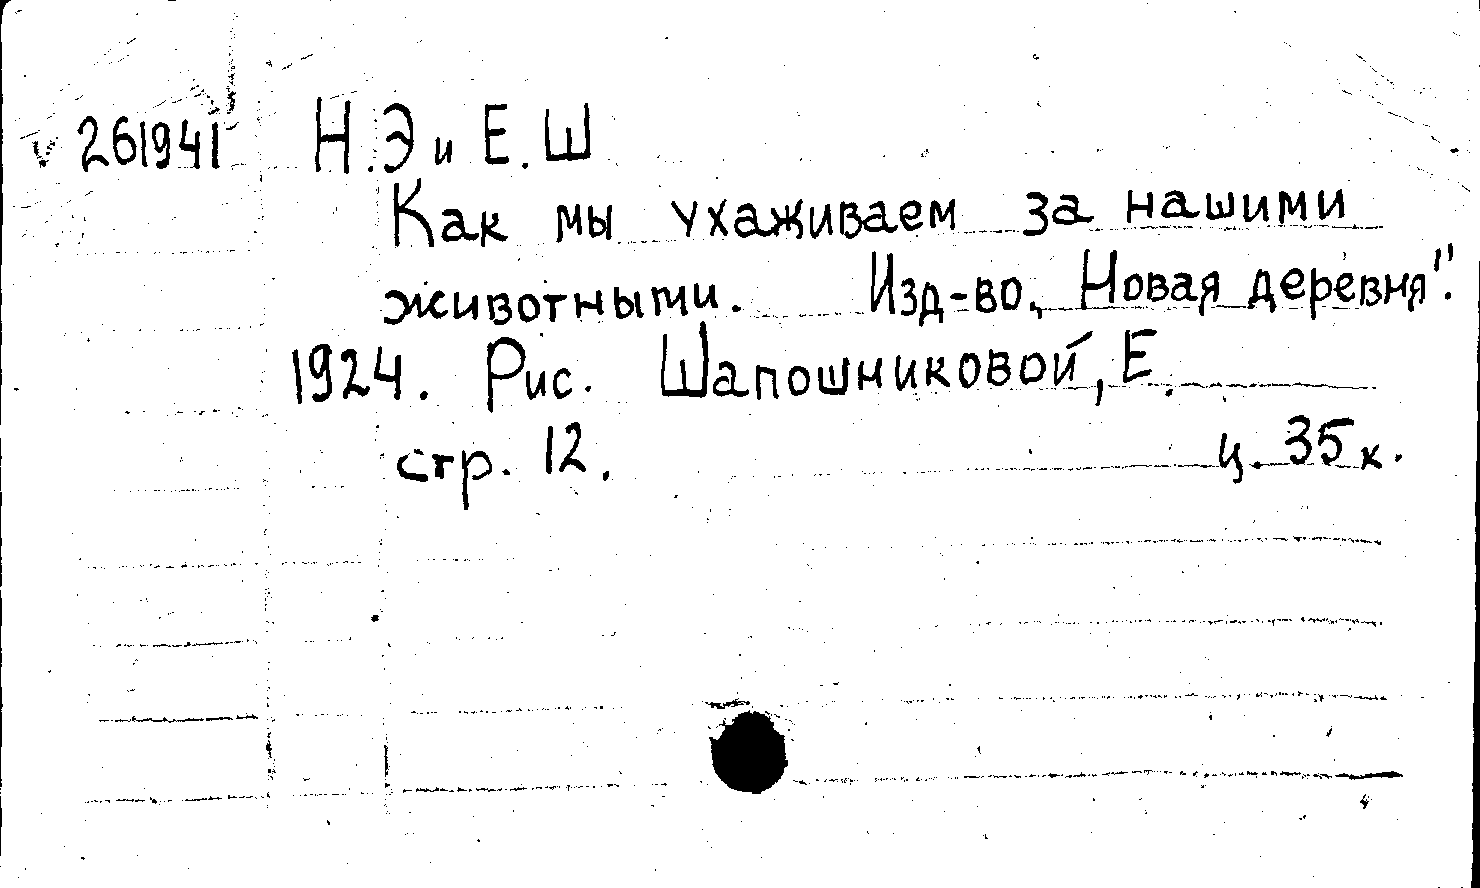 v 261941 Н.Э и Е.Ш
Как мы ухаживаем за нашими
животными. Изд-во „Новая деревня".
1924. Рис. Шапошниковой, Е.
стр. 12. ц. 35 к.